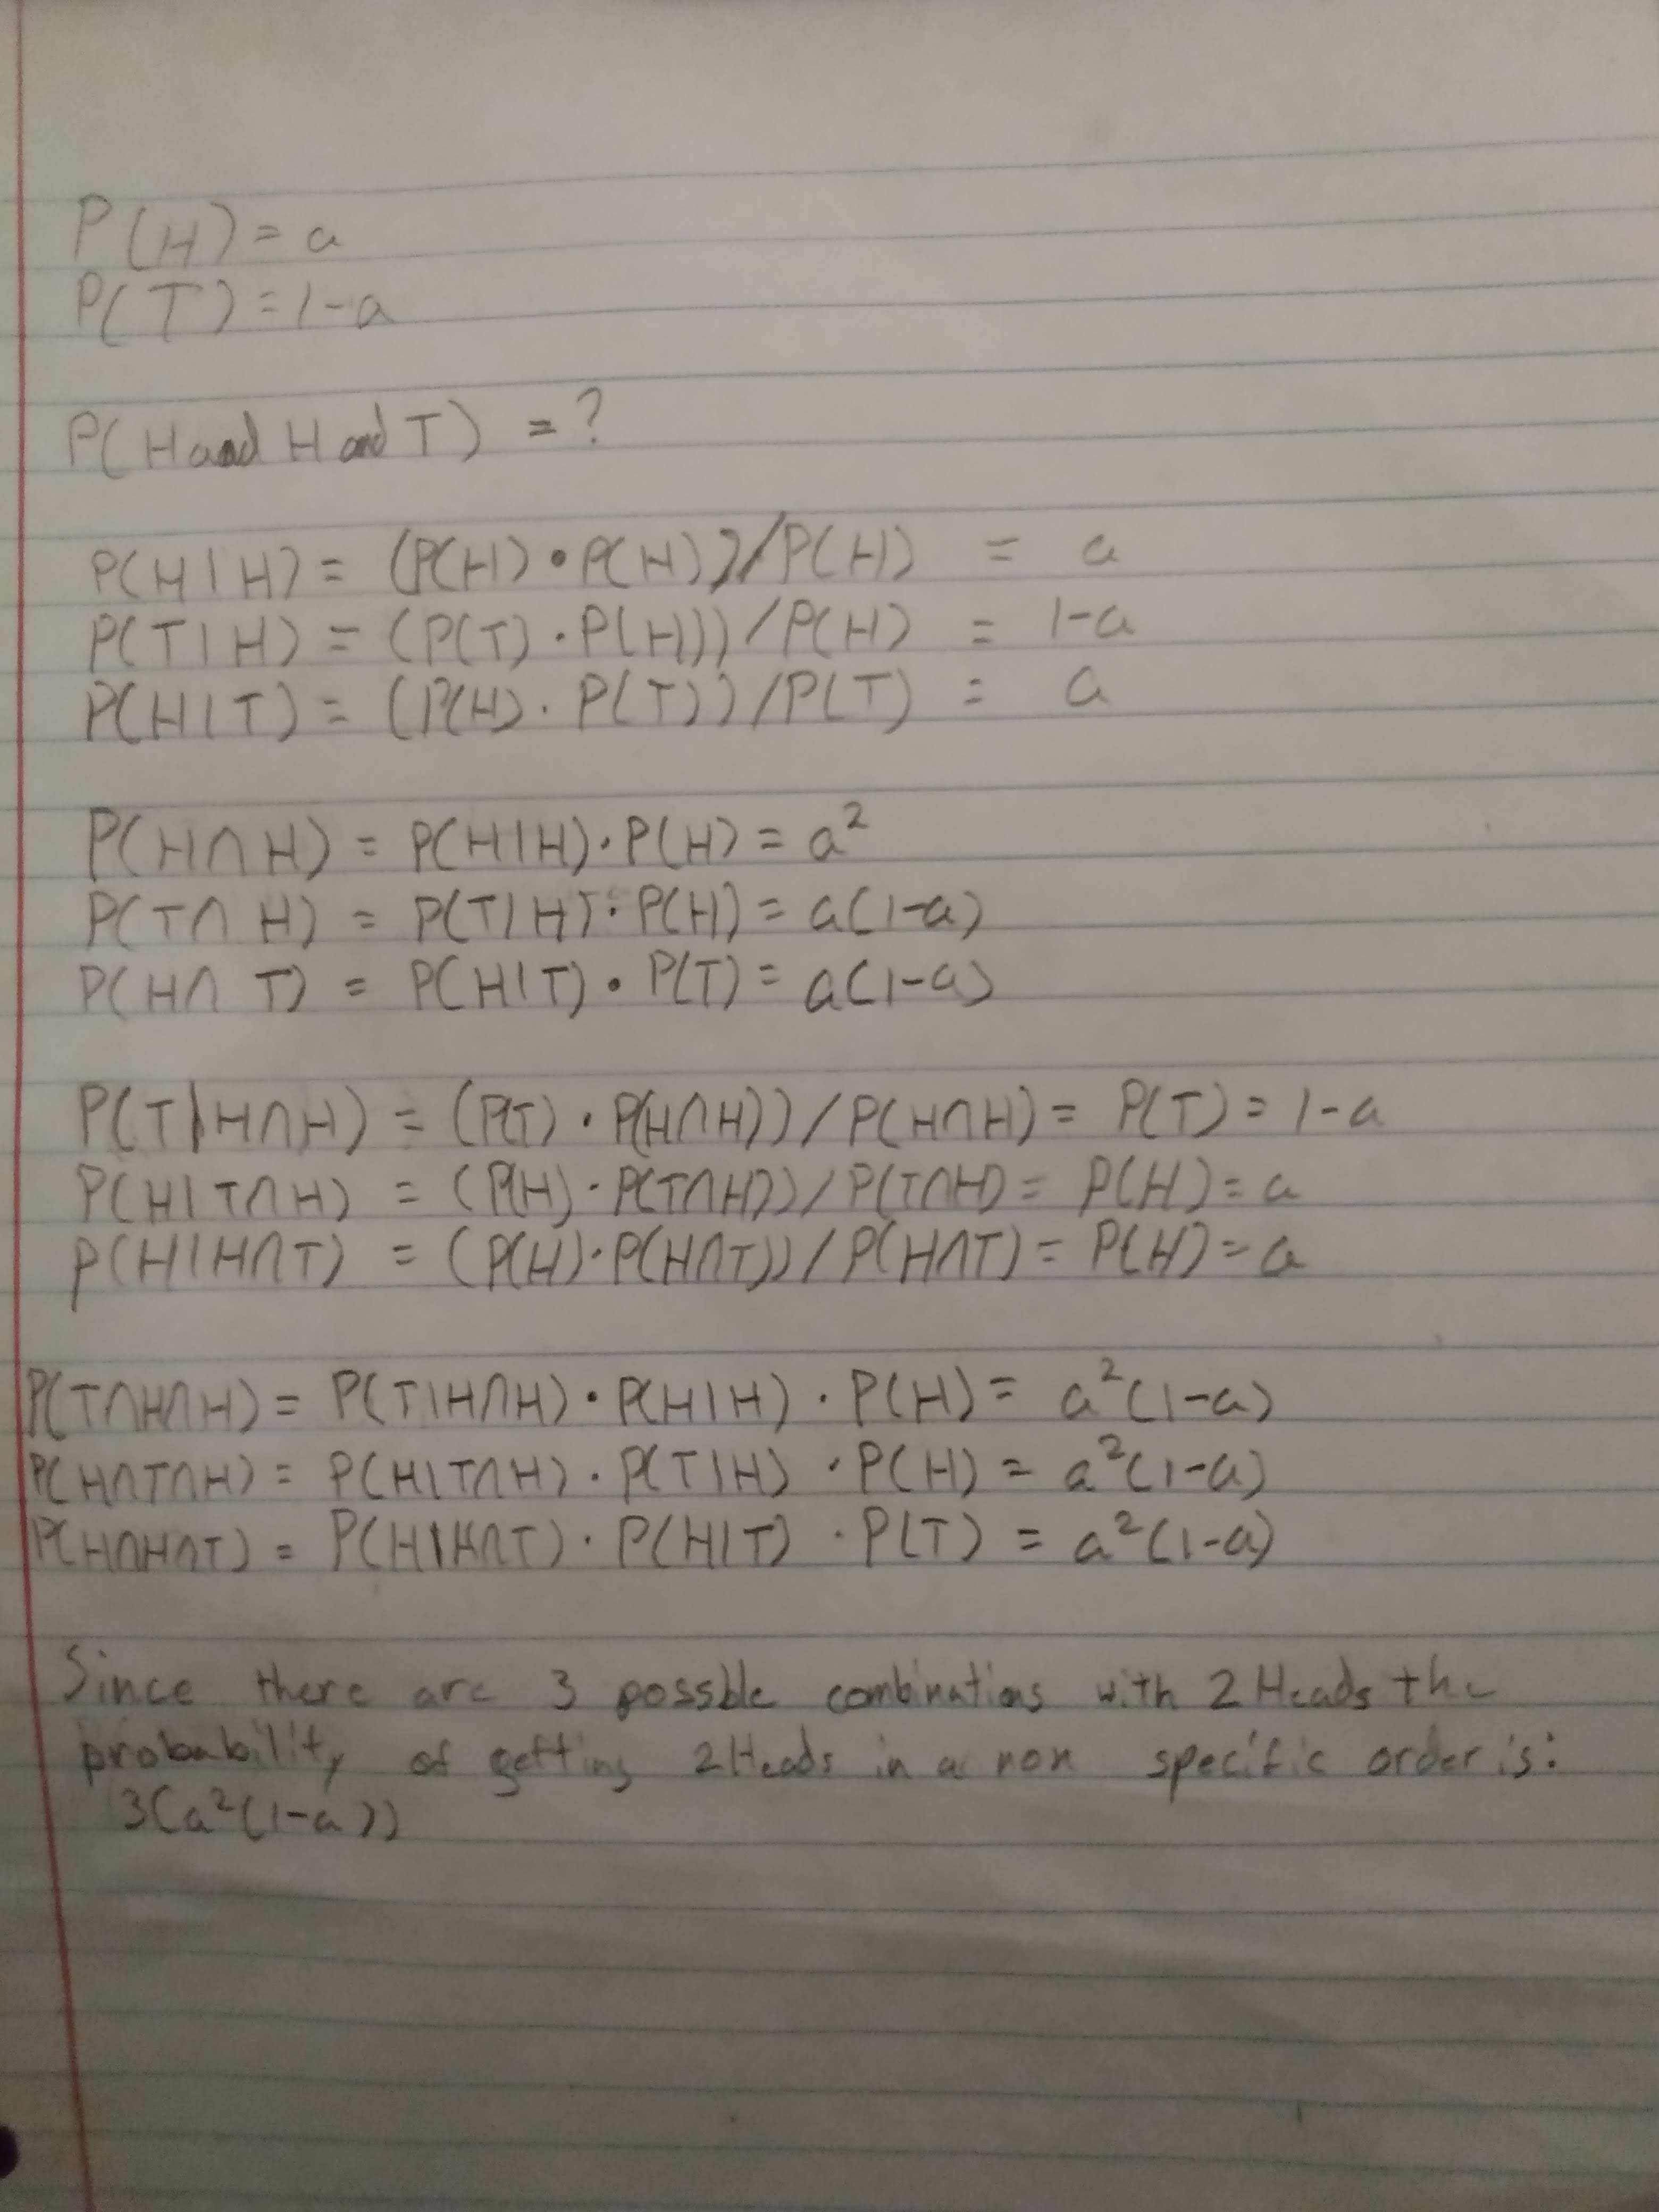 P(H) = a
P(T) = 1-a
P(H and H and T) = ?
P(H|H) = (P(H)•P(H))/P(H) = a
P(T|H) = (P(T)·P(H))/P(H) = 1-a
P(H|T) = (P(H)·P(T))/P(T) = a
P(H∩H) = P(H|H)·P(H) = a²
P(T∩H) = P(T|H)·P(H) = a(1-a)
P(H∩T) = P(H|T)•P(T) = a(1-a)
P(T|H∩H) = (P(T)·P(H∩H))/P(H∩H) = P(T) = 1-a
P(H|T∩H) = (P(H)·P(T∩H))/P(T∩H) = P(H) = a
P(H|H∩T) = (P(H)·P(H∩T))/P(H∩T) = P(H) = a
P(T∩H∩H) = P(T|H∩H)·P(H|H)·P(H) = a²(1-a)
P(H∩T∩H) = P(H|T∩H)·P(T|H)·P(H) = a²(1-a)
P(H∩H∩T) = P(H|H∩T)·P(H|T)·P(T) = a²(1-a)
Since there are 3 possble combinations with 2 Heads the
probability of getting 2 Heads in a non specific order is:
3(a²(1-a))